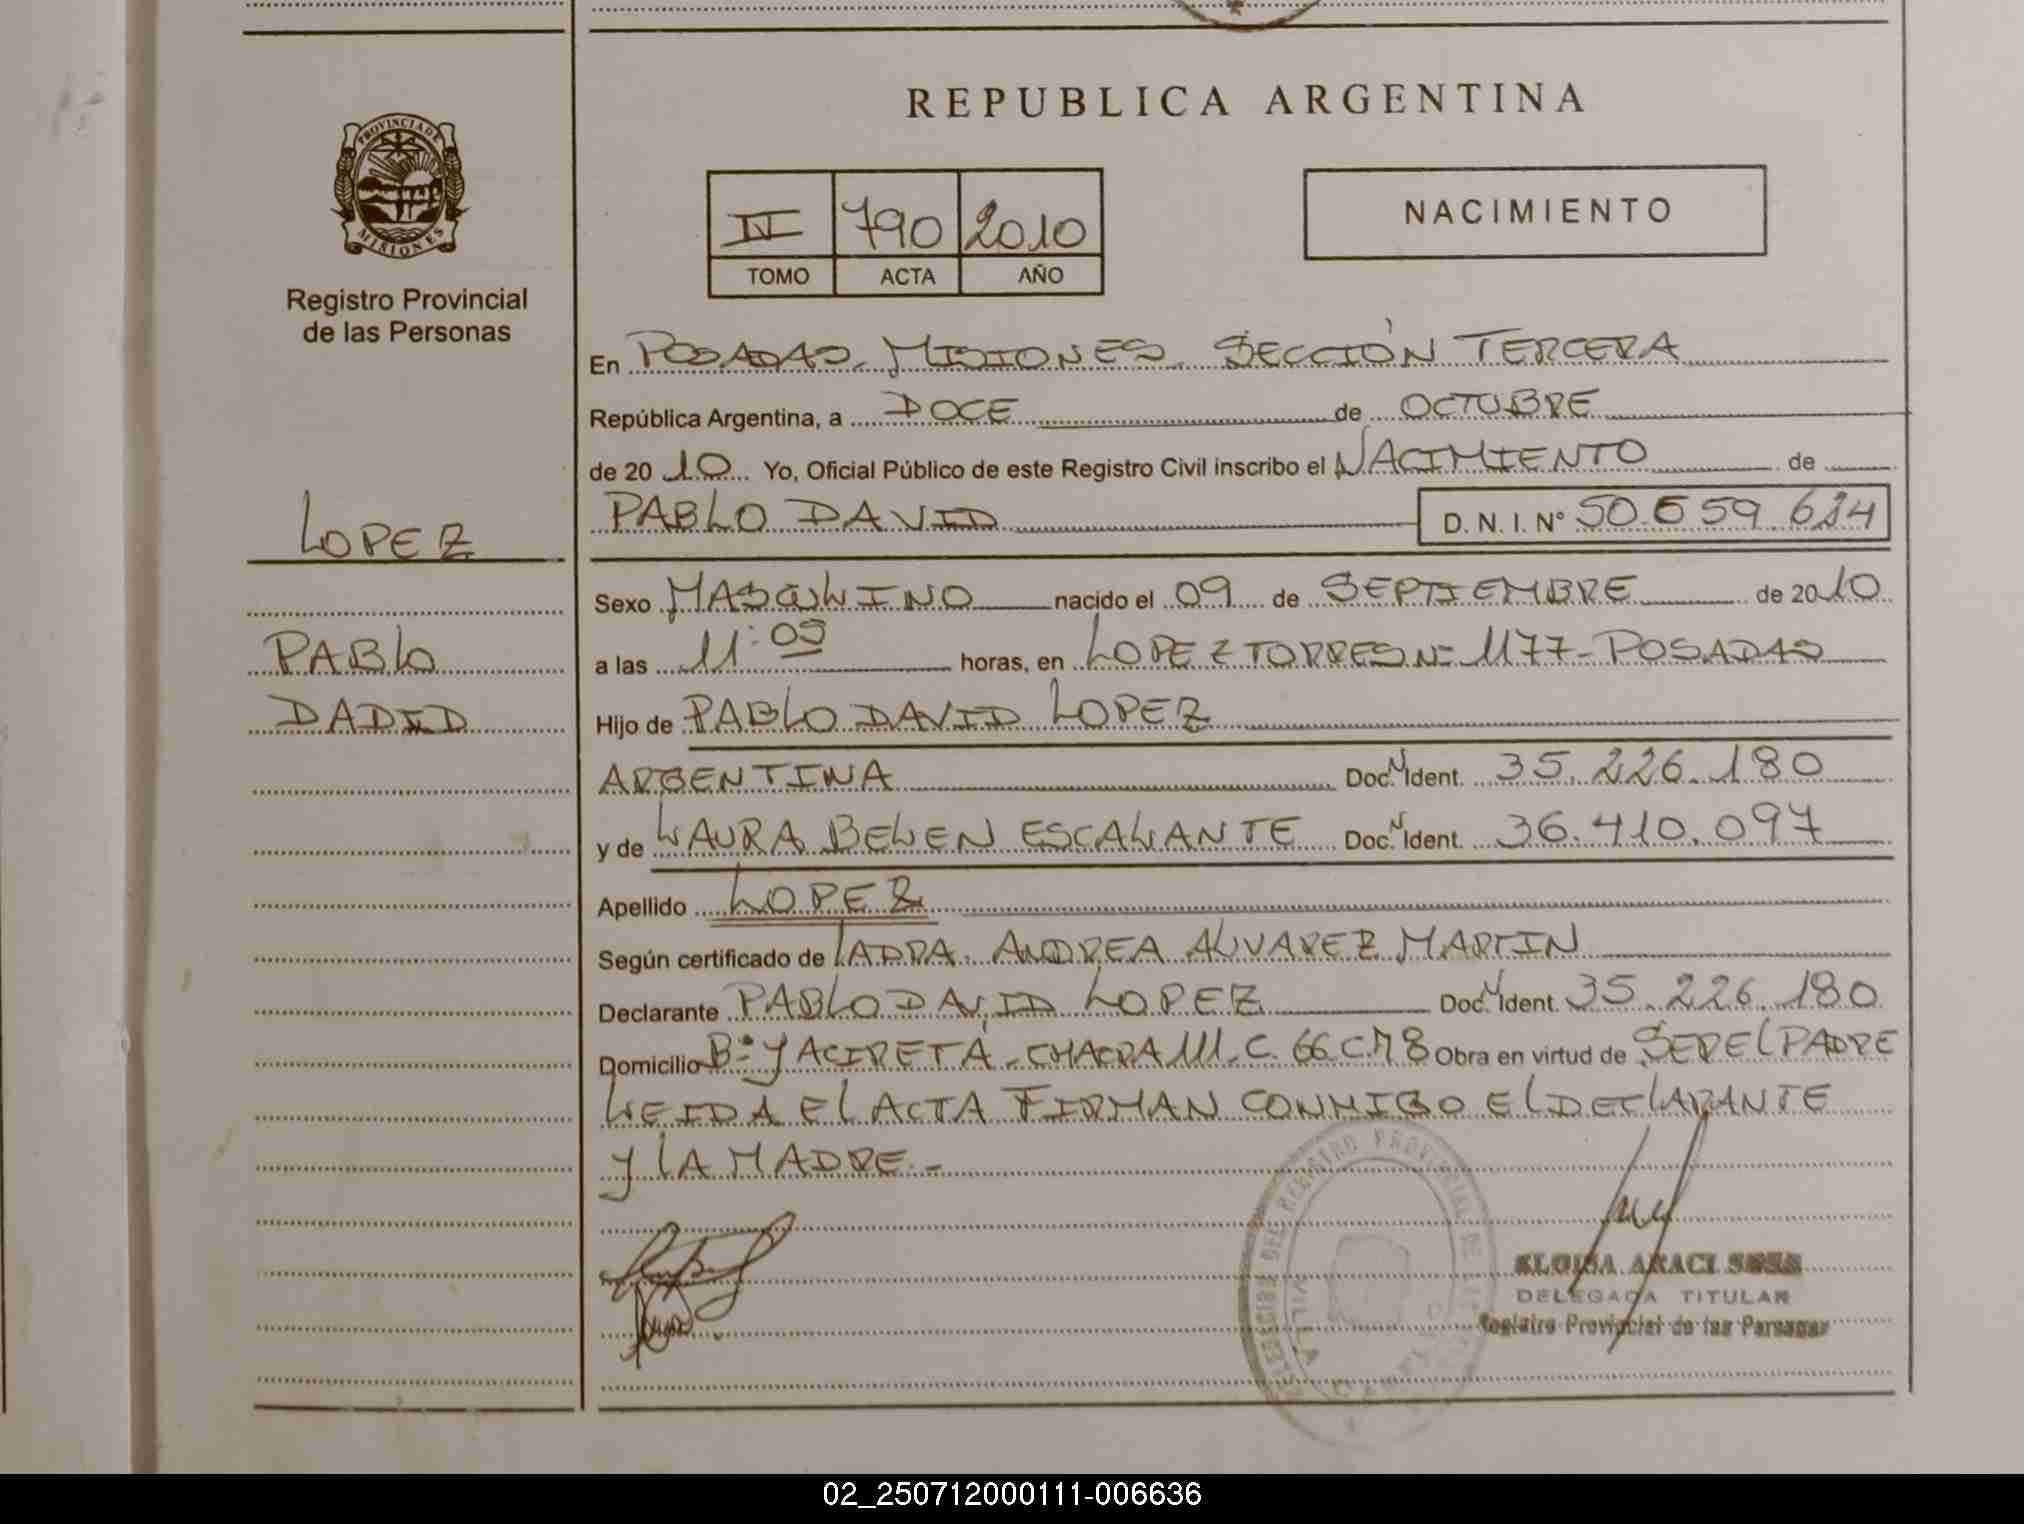 REPUBLICA ARGENTINA
PROVINCIA DE
MISIONES
Registro Provincial
de las Personas
IV 790 2010
TOMO ACTA AÑO
NACIMIENTO
En POSADAS. MISIONES. SECCIÓN TERCERA
República Argentina, a DOCE de OCTUBRE
de 2010 Yo, Oficial Público de este Registro Civil inscribo el NACIMIENTO de
PABLO DAVID D. N. I. Nº
LOPEZ
PABLO
DADID
Sexo MASCULINO nacido el 09 de SEPTIEMBRE de 2010
a las 11:09 horas, en LOPEZ TORRES Nº 1177-POSADAS
Hijo de PABLO DAVID LOPEZ
ARGENTINA Doc. Ident. 35.226.180
y de LAURA BELEN ESCALANTE Doc. Ident. 36.410.097
Apellido LOPEZ
Según certificado de LA DRA. ANDREA ALVAREZ MARTIN
Declarante PABLO DAVID LOPEZ Doc. Ident. 35.226.180
Domicilio Bº YACIRETÁ - CHACRA 111 - C. 66 C.M 8 Obra en virtud de SER EL PADRE
LEIDA EL ACTA FIRMAN CONMIGO EL DECLARANTE
Y LA MADRE.-
DEL REGISTRO PROVINCIAL DE
VILLA
ELOISA ARACI
DELEGADA TITULAR
Registro Provincial de las Personas
02_250712000111-006636